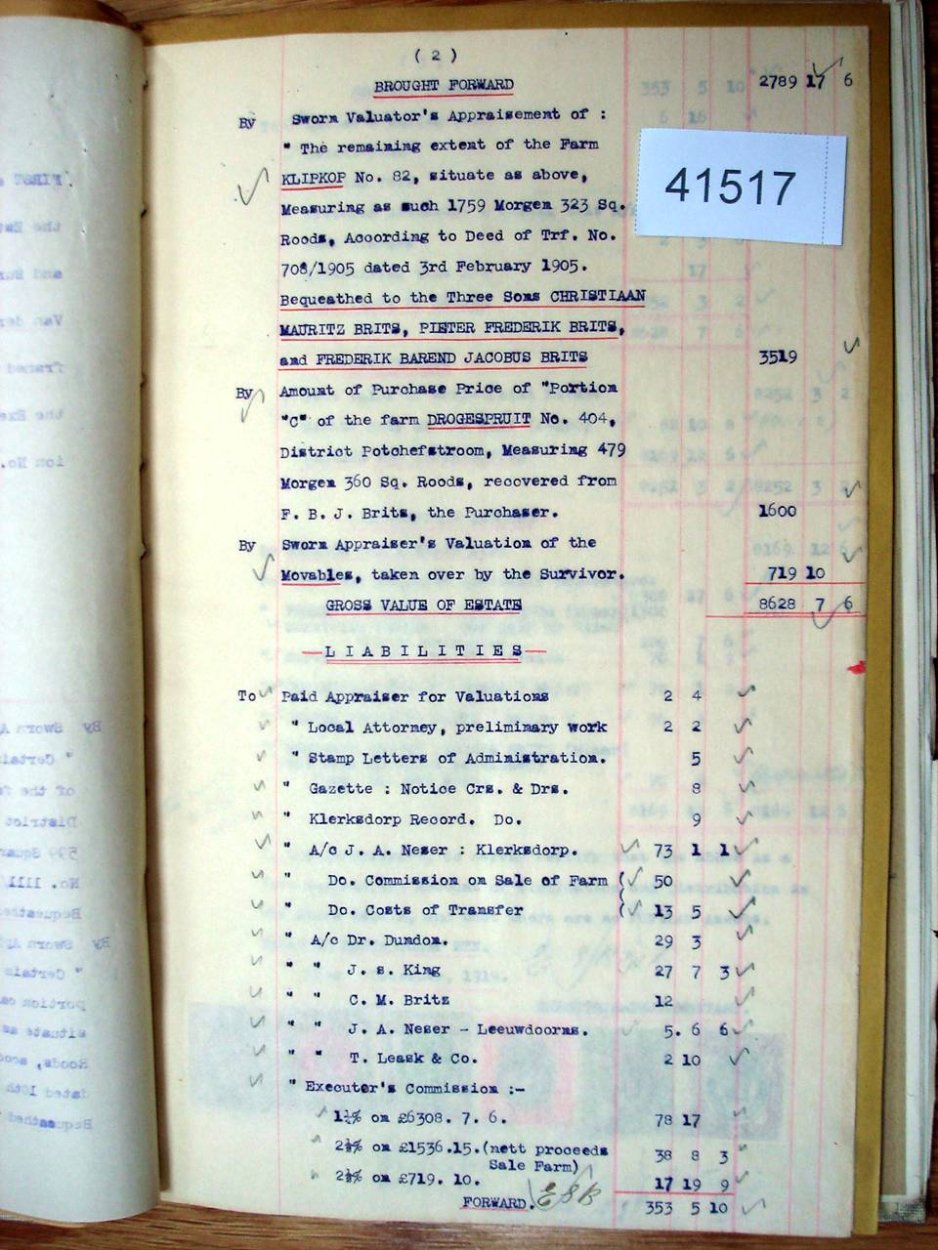 ( 2 )
BROUGHT FORWARD 2789 17 6
By Sworn Valuator's Appraisement of :
" The remaining extent of the Farm
KLIPKOP No. 82, situate as above,
Measuring as such 1759 Morgen 323 Sq.
Roods, According to Deed of Trf. No.
708/1905 dated 3rd February 1905.
Bequeathed to the Three Sons CHRISTIAAN
MAURITZ BRITS, PIETER FREDERIK BRITS,
and FREDERIK BAREND JACOBUS BRITS 3519
By Amount of Purchase Price of "Portion
"C" of the farm DROGESPRUIT No. 404,
District Potchefstroom, Measuring 479
Morgen 360 Sq. Roods, recovered from
F. B. J. Brits, the Purchaser. 1600
By Sworn Appraiser's Valuation of the
Movables, taken over by the Survivor. 719 10
GROSS VALUE OF ESTATE 8628 7 6
LIABILITIES
To Paid Appraiser for Valuations 2 4
" Local Attorney, preliminary work 2 2
" Stamp Letters of Administration. 5
" Gazette : Notice Crs. & Drs. 8
" Klerksdorp Record. Do. 9
" A/c J. A. Neser : Klerksdorp. 73 1 1
" Do. Commission on Sale of Farm ( 50
" Do. Costs of Transfer ( 13 5
" A/c Dr. Dundon. 29 3
" " J. s. King 27 7 3
" " C. M. Britz 12
" " J. A. Neser - Leeuwdoorns. 5. 6 6
" " T. Leask & Co. 2 10
" Executer's Commission :-
1¼% on £6308. 7. 6. 78 17
2½% on £1536.15.(nett proceeds
Sale Farm) 38 8 3
2½% on £719. 10. 17 19 9
FORWARD. 353 5 10
41517